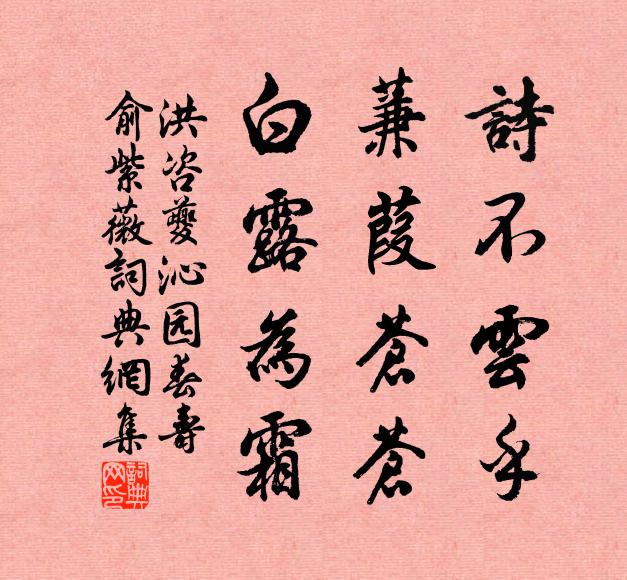 詩不雲乎
蒹葭蒼蒼
白露為霜
洪咨夔沁园春壽
俞紫薇詞典網集
詞典网印